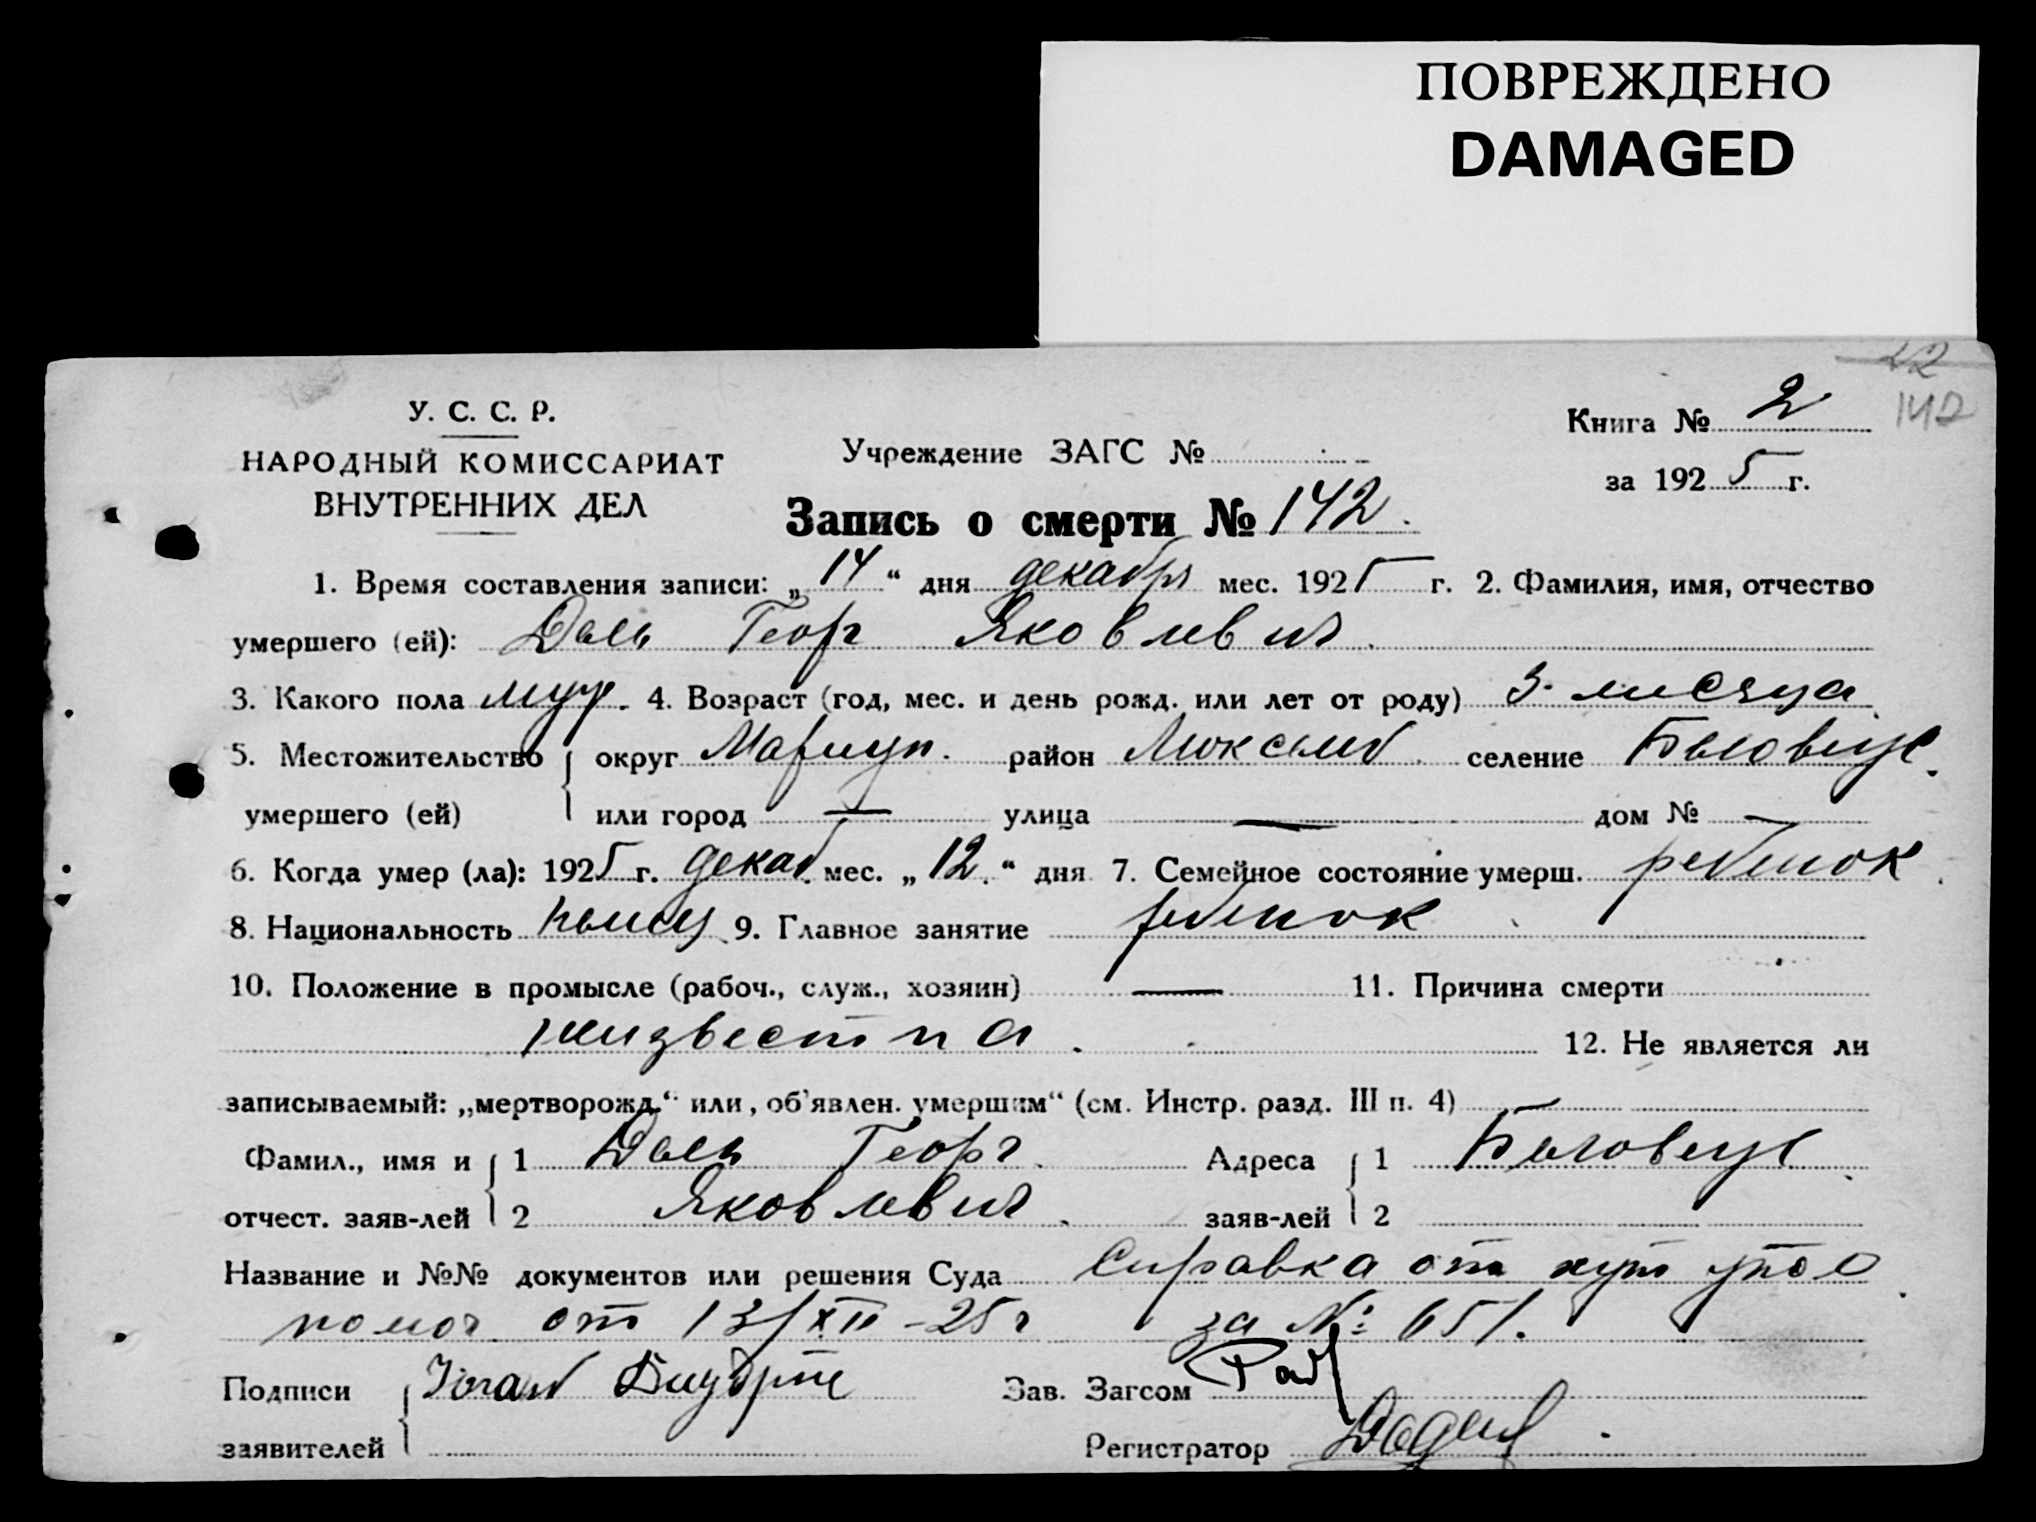 ПОВРЕЖДЕНО
DAMAGED
22
142
У. С. С. Р.
НАРОДНЫЙ КОМИССАРИАТ
ВНУТРЕННИХ ДЕЛ
Учреждение ЗАГС №
Книга № 2
за 1925 г.
Запись о смерти № 142.
1. Время составления записи: „14“ дня декабря мес. 1925 г. 2. Фамилия, имя, отчество
умершего (ей): Даль Георг Яковлевич.
3. Какого пола муж. 4. Возраст (год, мес. и день рожд. или лет от роду) 3. месяца
5. Местожительство округ Мариуп. район Люксемб. селение
умершего (ей) или город — улица — дом № —
6. Когда умер (ла): 1925 г. декаб. мес. „12.“ дня 7. Семейное состояние умерш. ребенок.
8. Национальность немец 9. Главное занятие ребенок
10. Положение в промысле (рабоч., служ., хозяин) — 11. Причина смерти
неизвестна. 12. Не является ли
записываемый: „мертворожд.“ или „об'явлен. умершим“ (см. Инстр. разд. III п. 4) —
Фамил., имя и 1 Даль Георг. Адреса 1
отчест. заяв-лей 2 Яковлевич. заяв-лей 2
Название и №№ документов или решения Суда Справка от
помоч от 13/XII-25 г за № 651.
Подписи Зав. Загсом
заявителей Регистратор